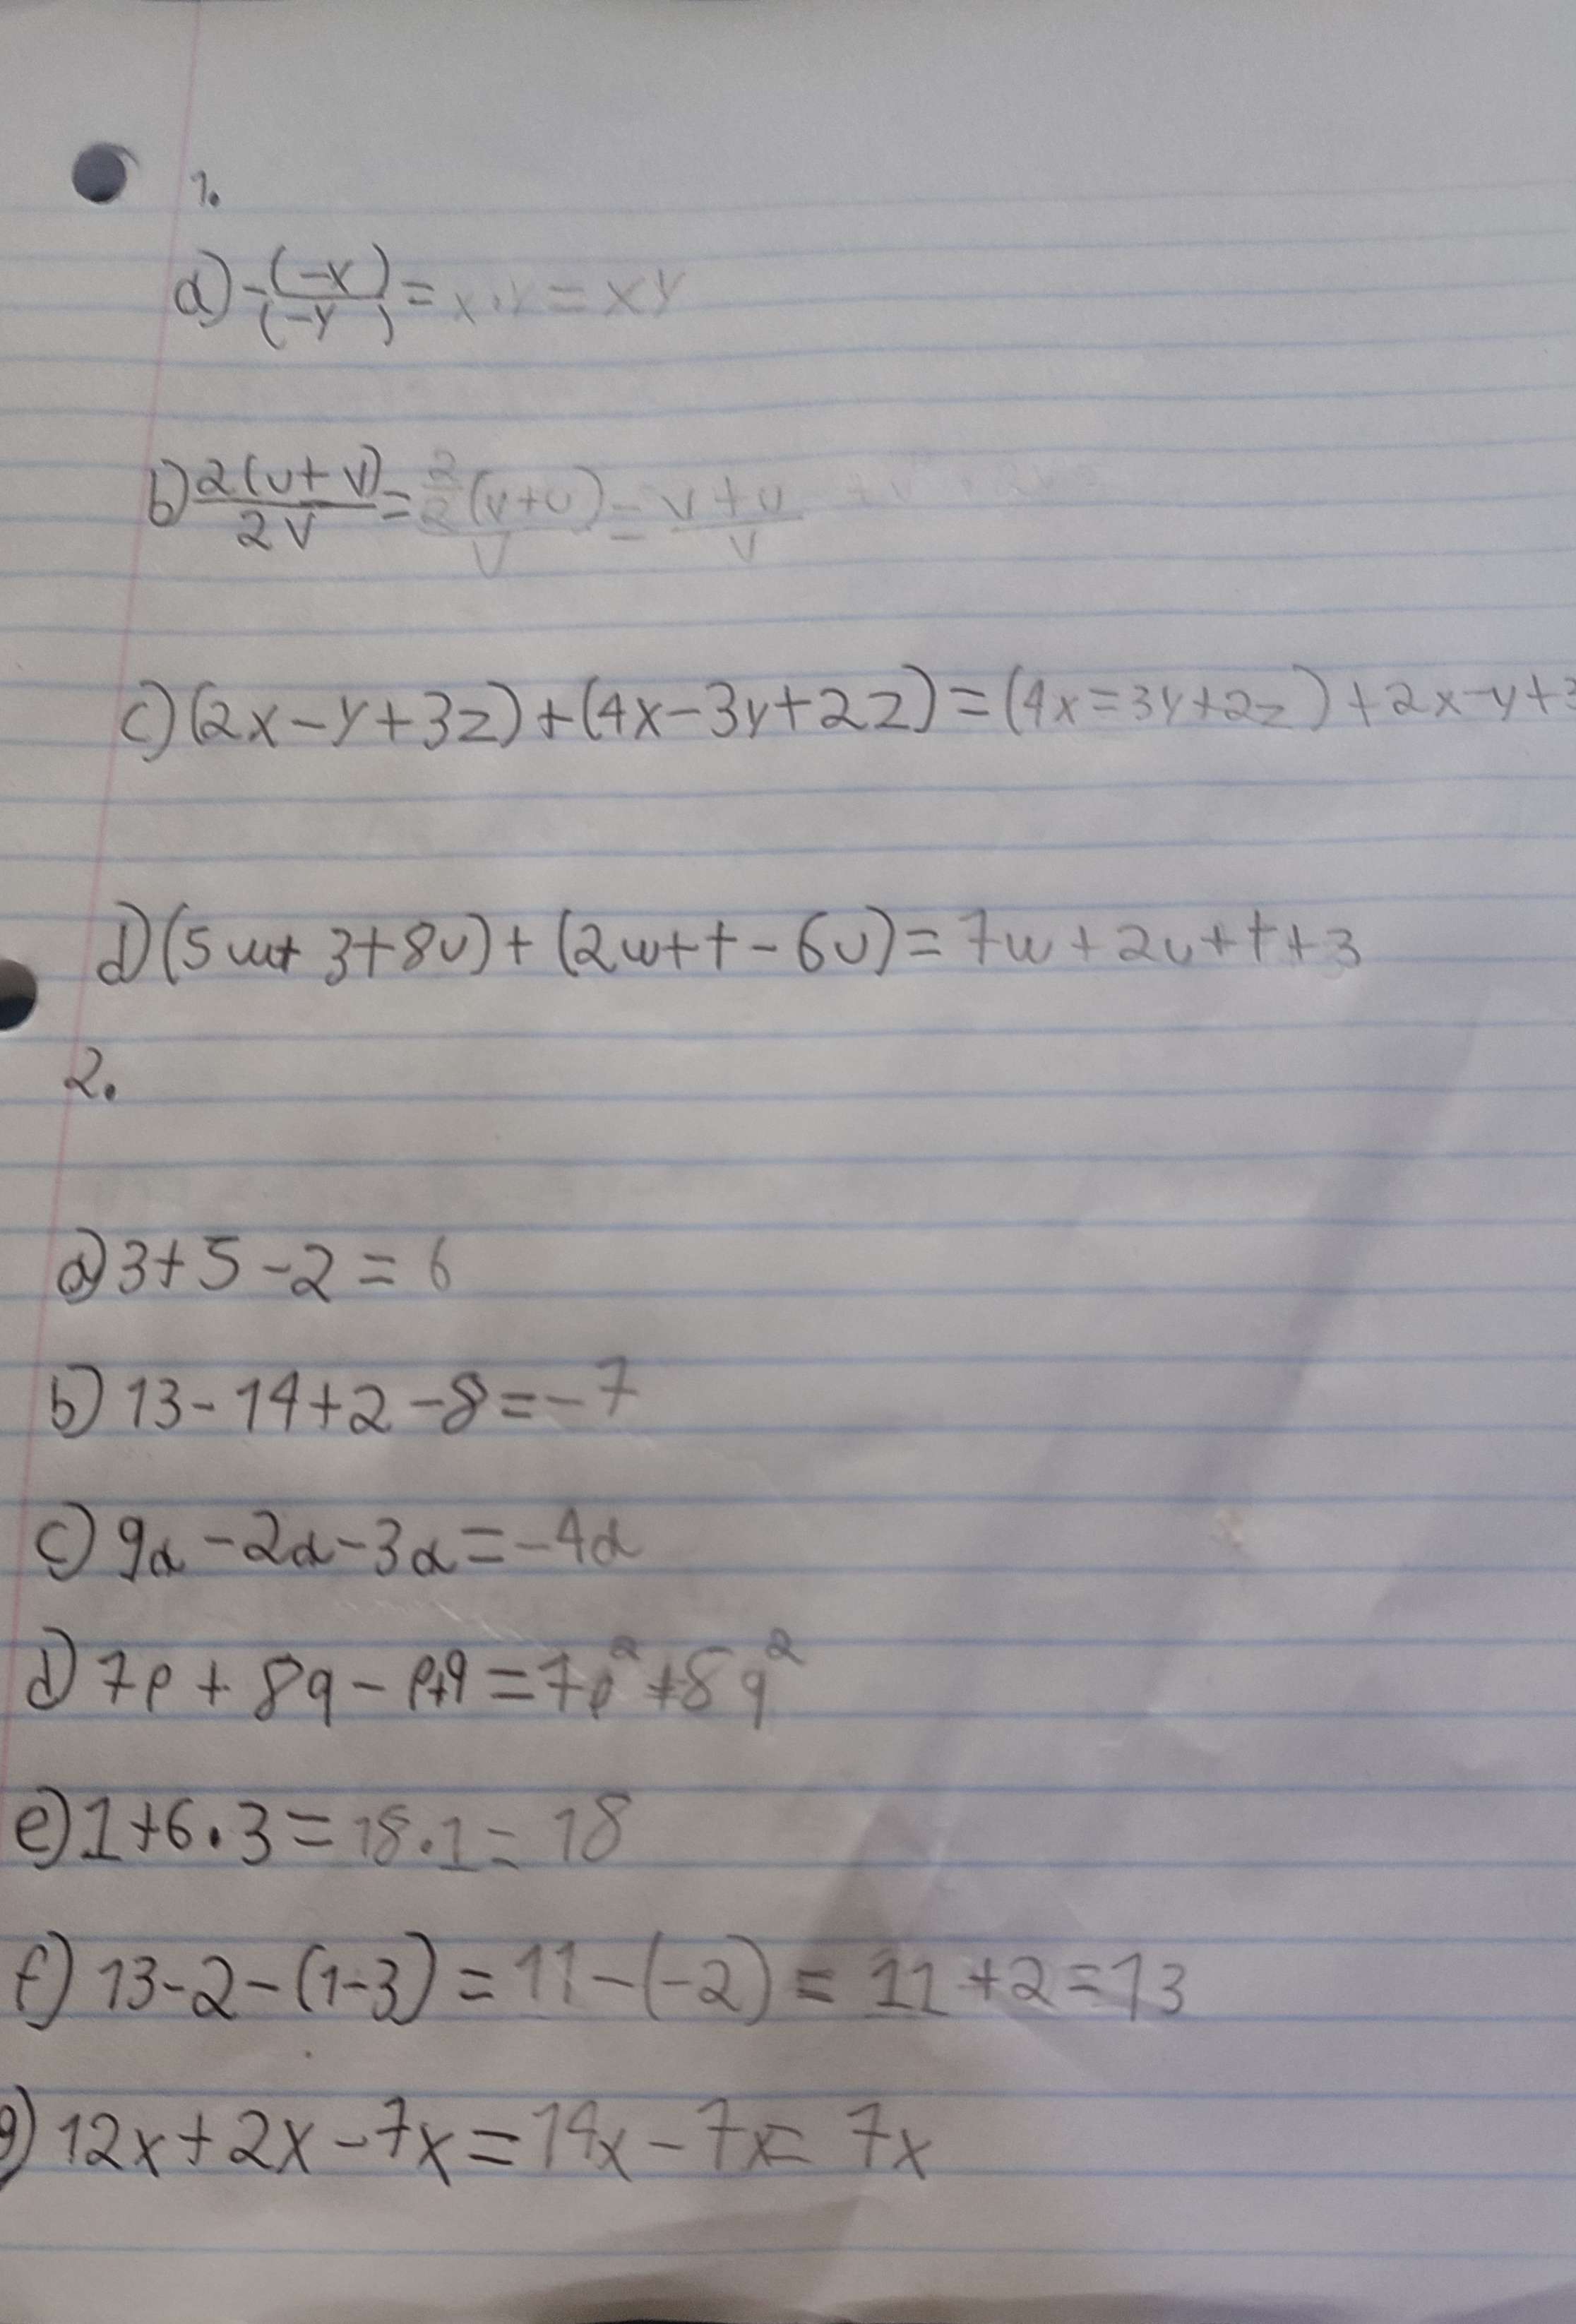 1.
a) -(-x)/(-y) = x·y = xy
b) 2(u+v)/2v = 2/2 (v+u)/v = v+u/v
c) (2x-y+3z)+(4x-3y+2z)=(4x=3y+2z)+2x-y+3
d) (5w+3+8u)+(2w+t-6u)=7w+2u+t+3
2.
a) 3+5-2=6
b) 13-14+2-8=-7
c) 9a-2a-3a=-4a
d) 7p+8q-p+q=7p²+8q²
e) 1+6·3=18·1=18
f) 13-2-(1-3)=11-(-2)=11+2=13
g) 12x+2x-7x=14x-7x=7x